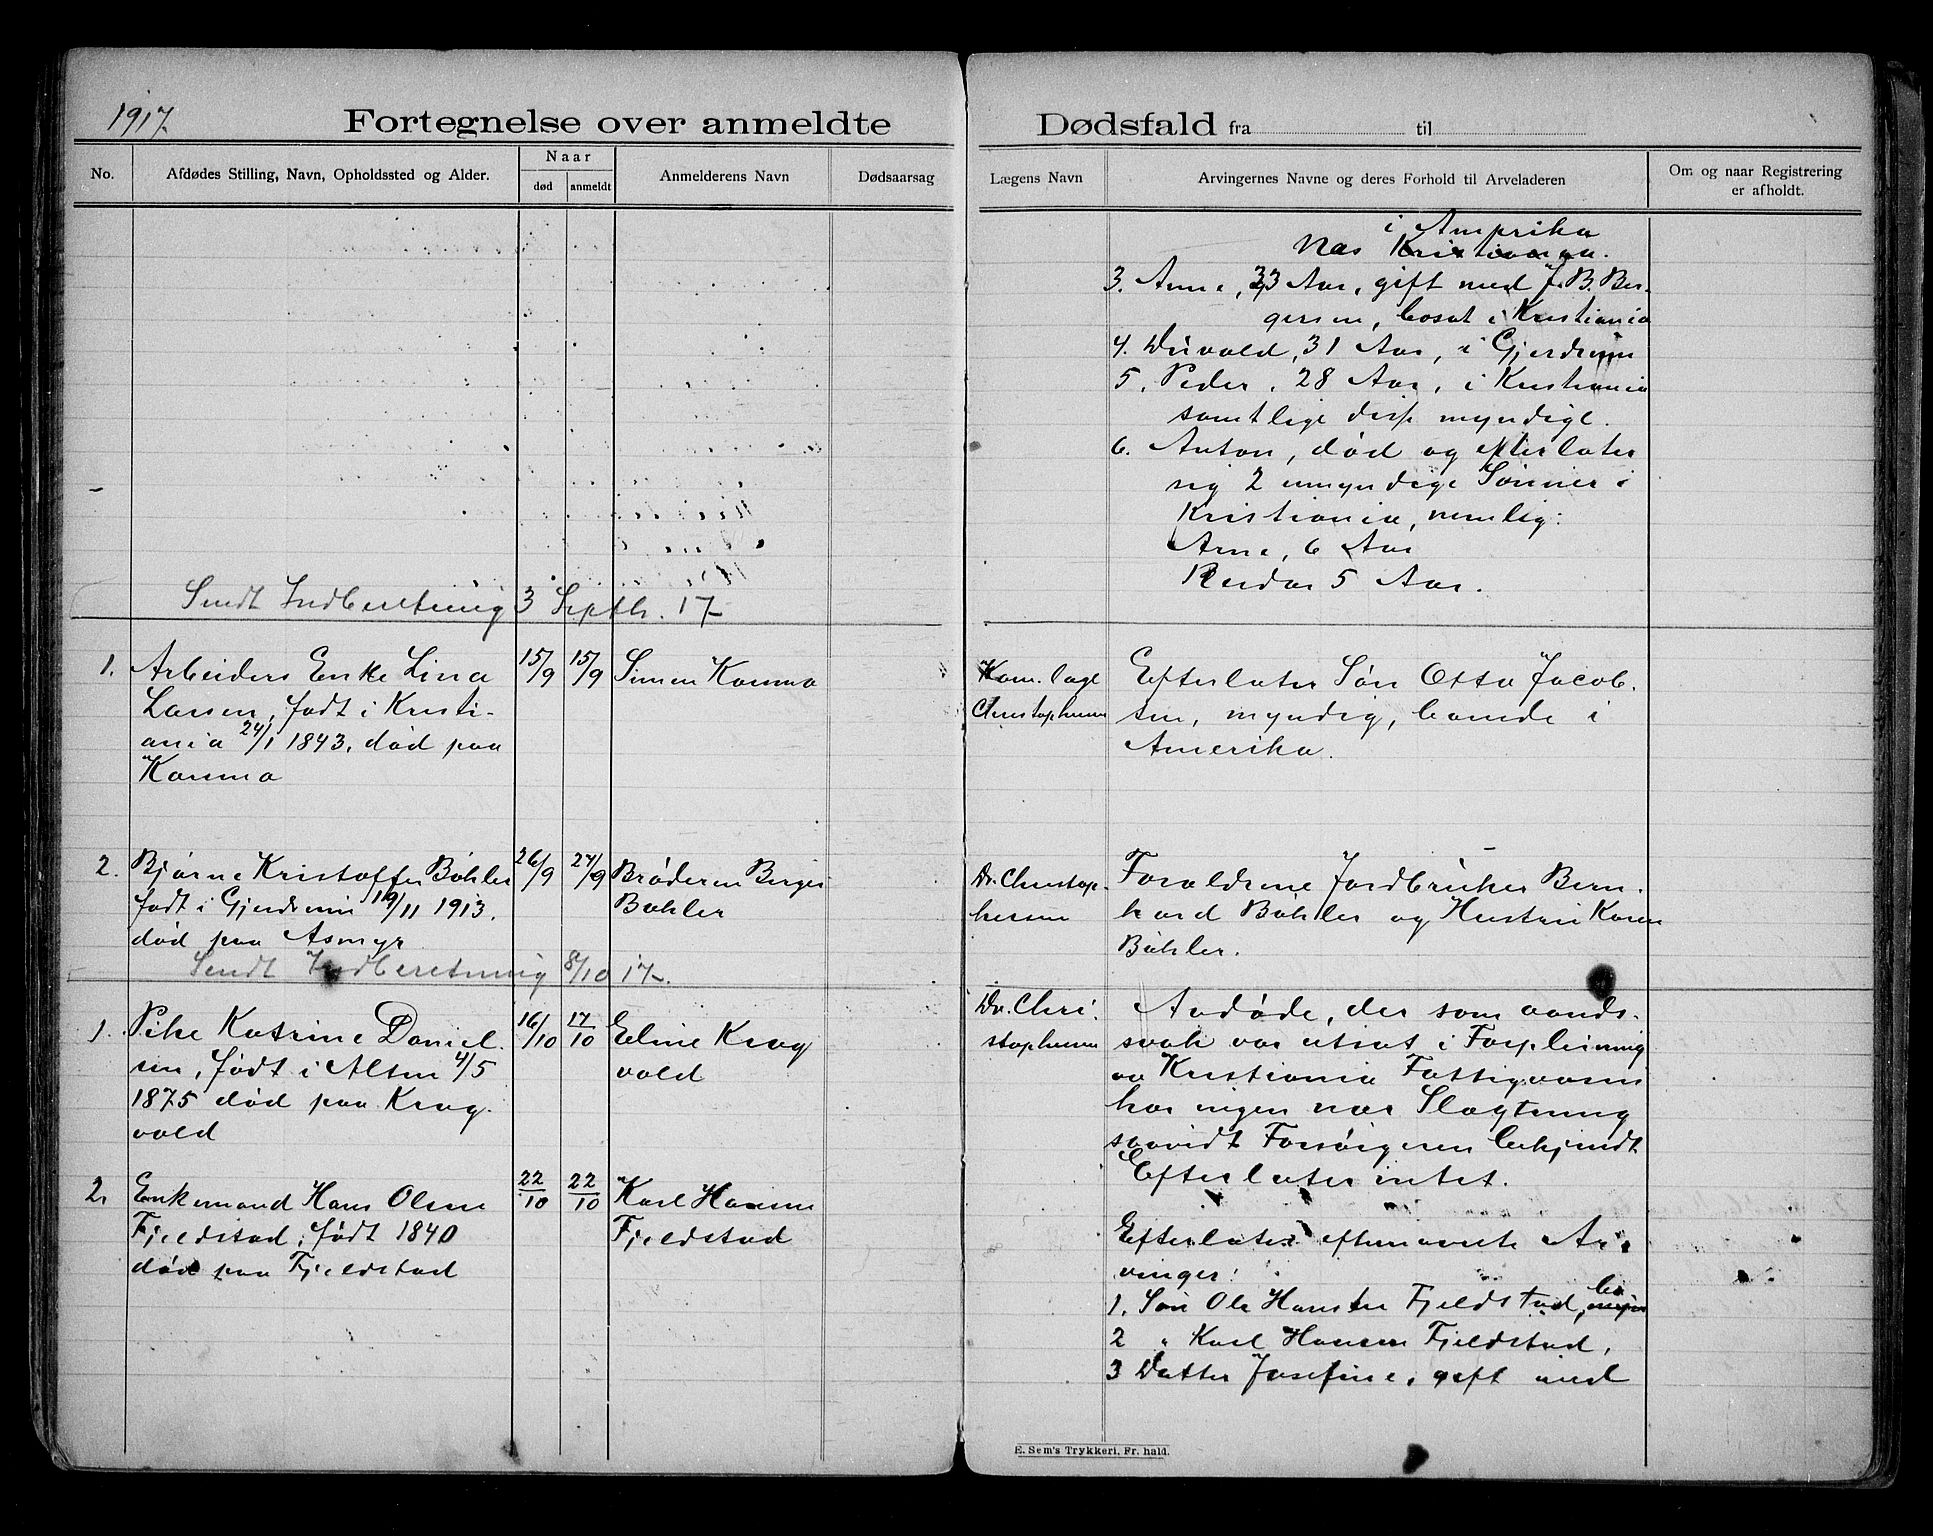 1917.
Fortegnelse over anmeldte
No.
Afdødes Stilling, Navn, Opholdssted og Alder.
Naar
død
anmeldt
Anmelderens Navn
Dødsaarsag
Sendt Indberetning 3 Septb. 17
1. Arbeiders Enke Lina 15/9 15/9 Simen Kamma
Larsen, født i Kristi-
ania 24/1 1843, død paa
Kamma
2. Bjarne Kristoffer Bøhler 26/9 27/9 Broderen Birger
født i Gjerdrum 11 1913. Bøhler
død paa Asmyr
Sendt Indberetning 8/10 17.
1. Pike Katrine Daniel- 16/10 17/10 Eline Krag
sen, født i Alsen 4/5 vold
1875 død paa Krag-
vold
2. Enkemand Hans Olsen 22/10 22/10 Karl Hansen
Fjeldstad, født 1840 Fjeldstad
død paa Fjeldstad
Dødsfald fra til
Lægens Navn
Arvingernes Navne og deres Forhold til Arveladeren
Om og naar Registrering
er afholdt.
i Amerika
Næs Kristiania.
3. Anne, 33 Aar, gift med J. B. Ber-
gersen, bosat i Kristiania
4. 31 Aar, i Gjerdrum
5. Peder, 28 Aar, i Kristiania
samtlige disse myndige.
6. Anton, død og efterlater
sig 2 umyndige Sønner i
Kristiania, nemlig:
Arne, 6 Aar
Reidar 5 Aar.
Kom. læge Efterlater Søn Otto Jacob-
Christophersen sen, myndig, boende i
Amerika.
Dr. Christop- Forældrene Jordbruker Bern-
hersen hard Bøhler og Hustru Karen
Bøhler.
Dr. Chri- Avdøde, der som aands-
stophersen svak var utsat i Forpleining
av Kristiania Fattigvæsen
har ingen nær Slægtning
saavidt bekjendt
Efterlater intet.
Efterlater efternævnte Ar-
vinger:
1. Søn Ole Hansen Fjeldstad,
2 " Karl Hansen Fjeldstad,
3 Datter Josefine, gift med
E. Sem's Trykkeri, Fr. hald.